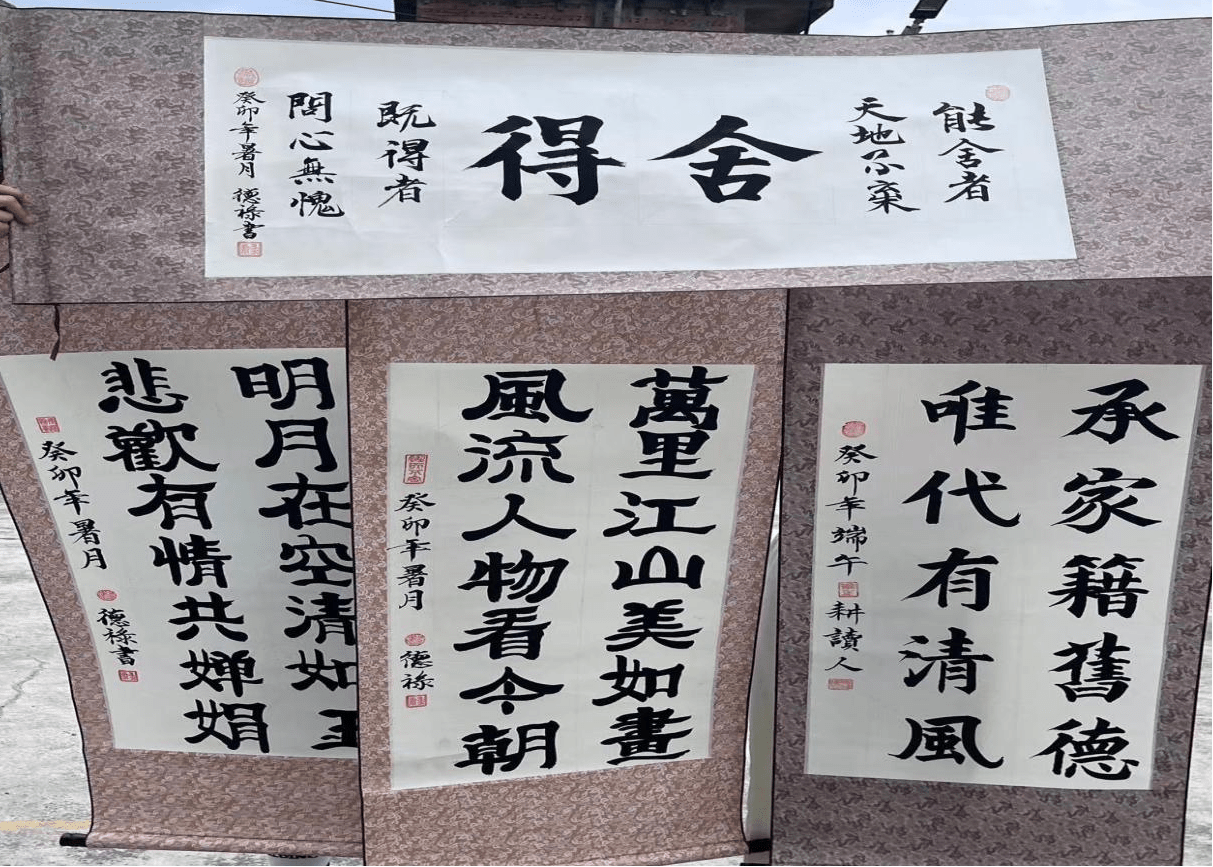 能舍者
天地不棄
舍得
既得者
問心無愧
癸卯年暑月 德祿書
承家籍舊德
唯代有清風
癸卯年端午
耕讀人
萬里江山美如畫
風流人物看今朝
癸卯年暑月
德祿
明月在空清如玉
悲歡有情共嬋娟
癸卯年暑月
德祿書